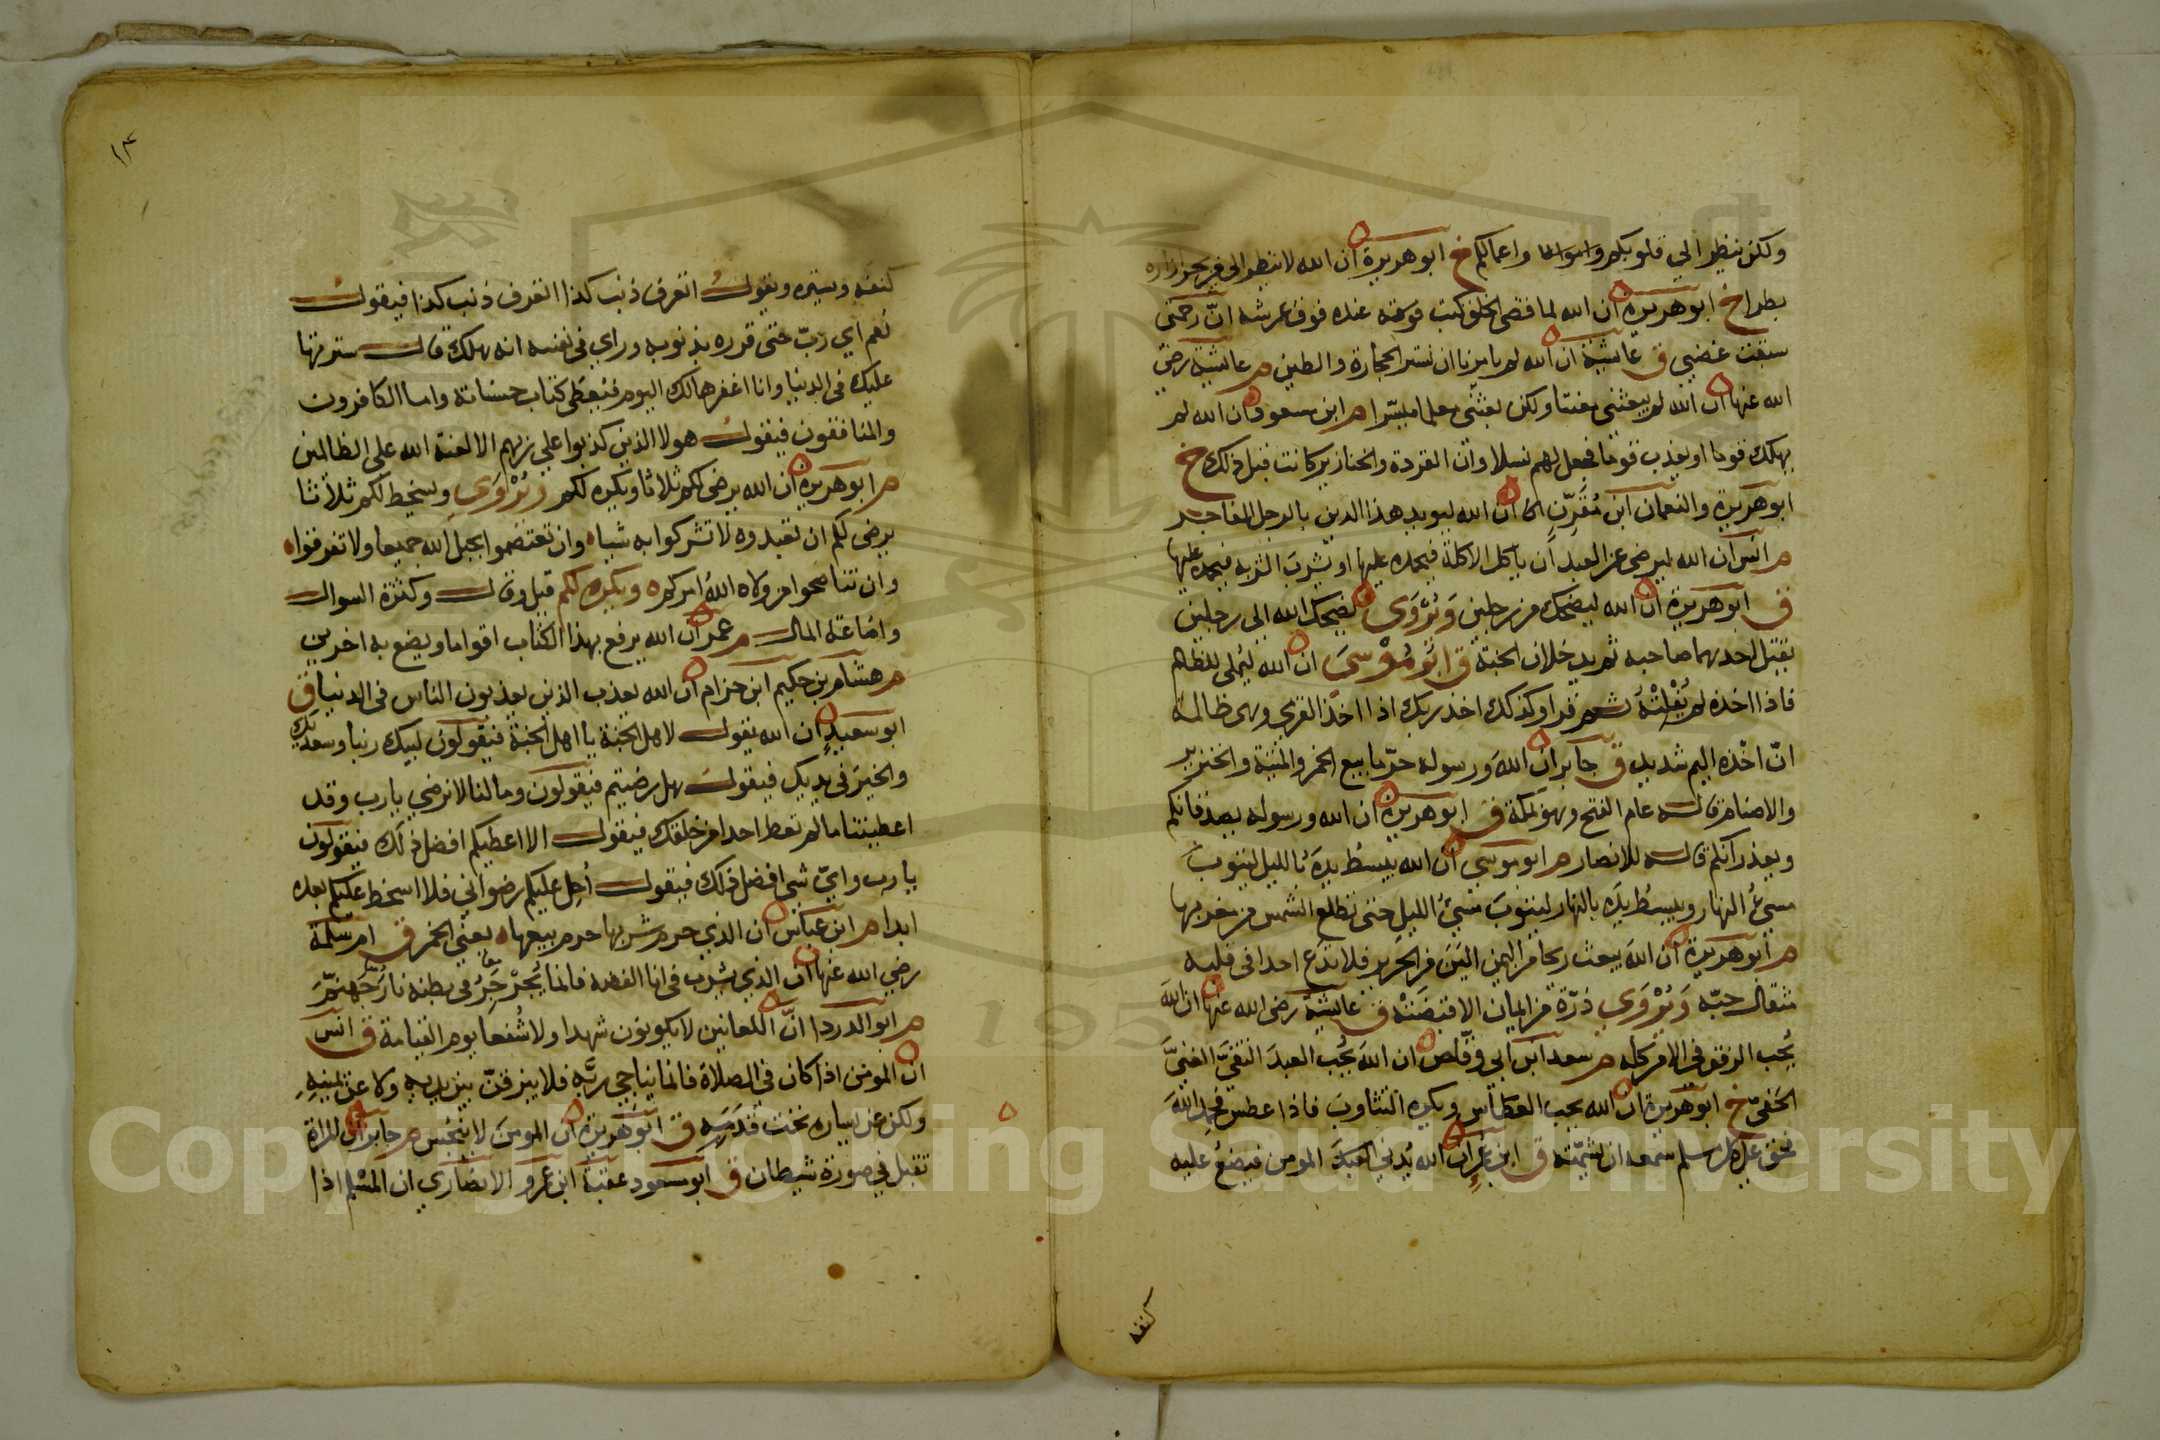 ولكن ينظر الي قلوبكم واموالكم واعمالكم خ ابو هريرة ان الله لا ينظر الى من يجر ازاره
بطرا خ ابو هريرة ان الله لما قضى الخلق كتب فوقه عنده فوق عرشه انّ رحمتي
سبقت غضبي ق عايشة ان الله لم يامرنا ان نستر الحجارة والطين م عايشة رضي
الله عنها ان الله لم يبعثني معنتا ولكن بعثني معلما ميسّرا م ابن مسعود ان الله لم
يهلك قوما او يعذب قوما فجعل لهم نسلا وان القردة والخنازير كانت قبل ذلك خ
ابو هريرة والنعمان ابن مُقَرِّنٍ ان الله ليويد هذا الدين بالرجل الفاجر
م انس ان الله ليرضى عن العبد ان ياكل الاكلة فيحمده عليها او يشرب الشربة فيحمده عليها
ق ابو هريرة ان الله ليضحك من رجلين وَيُرْوَى يضحك الله الى رجلين
يقتل احدهما صاحبه ثم يدخلان الجنة ق ابو مُوْسَى ان الله ليُملي للظالم
فاذا اخذه لم يُفْلِتْهُ ثم قرا وكذلك اخذ ربك اذا اخذ القرى وهى ظالمة
انّ اخْذه اليم شديد ق جابر ان اللهَ ورسوله حرّما بيع الخمر والميتة والخنزير
والاصنام قاله عام الفتح وهو بمكة ق ابو هريرة ان الله ورسوله يصدقانكم
ويعذرانكم قاله للانصار م ابو موسي ان الله يبسُط يدهَ بالليل ليتوب
مسيءُ النهار ويبسُط يدَه بالنهار ليتوبَ مسيءُ الليل حتى تطلع الشمس من مغربها
م ابو هريرة ان اللهَ يبعث ريحا من اليمن الينَ من الحرير فلا تدَع احدا في قلبه
مثقال حبّه وَيُرْوَى ذرّة من ايمان الا قبضَتْه ق عايشة رضى الله عنها ان اللهَ
يُحب الرفق في الامر كله م سعد ابن ابي وقّاص ان اللهَ يُحب العبدَ التقيَّ الغنيَّ
الخفيّ خ ابو هريرة ان الله يحب العطاس ويكره التثاوبَ فاذا عطس فحمد اللهَ
فحق على كل مسلم سمعه ان يشمّته ق ابن عُمَرَ ان الله يُدني العبدَ المومن فيضعُ عليه
كنفه
١٣
كنفَه ويستره ويقولُ اتعرف ذنب كذا اتعرف ذنب كذا فيقولُ
نعم اي رَبّ حتى قرره بذنوبه وراي في نفسه انه هلك قال سترتها
عليك في الدنيا وانا اغفرها لك اليوم فيُعطى كتاب حسناته واما الكافرون
والمنافقون فيقولُ هولا الذين كذبوا على ربهم الا لعنة الله على الظالمين
م ابو هريرة ان الله يرضى لكم ثلاثا ويكره لكم وَيُرْوَى ويسخط لكم ثلاثا
يرضى لكم ان تعبدوه ولا تشركوا به شيا وان تعتصموا بحبل الله جميعا ولا تفرقوا
وان تناصحوا من ولاه اللهُ امركم ويكره لكم قيل وقال وكثرة السوال
واضاعة المال م عمر ان الله يرفع بهذا الكتاب اقواما ويضع به اخرين
م هشام بن حكيم ابن حزام ان الله يعذب الذين يعذبون الناس في الدنيا ق
ابو سعيدٍ ان الله يقول لاهل الجنة يا اهل الجنة فيقولون لبيك ربنا وسعديك
والخيرَ في يديك فيقولُ هل رضيتم فيقولون وما لنا لا نرضي يا رب وقد
اعطيتنا ما لم تعط احدا من خلقك فيقول الا اعطيكم افضل من ذلك فيقولون
يا رب وايّ شى افضل من ذلك فيقول أُحِل عليكم رضواني فلا اسخط عليكم بعده
ابدا م ابن عباس ان الذي حرم شربها حرم بيعها يعني الخمر ق ام سلمة
رضي الله عنها ان الذي يشرب في انا الفضه فانما يُجَرْجِرُ في بطنه نارَ جهنّمَ
م ابو الدردا انّ اللعانين لا يكونون شهدا ولا شُفعا يوم القيامة ق انس
ان المومن اذا كان في الصلاة فانما يناجي ربَّه فلا يبزقنّ بين يديه ولا عن يمينِهِ
ولكن عن يساره تحت قدَمِه ق ابو هريرة ان المومنَ لا ينجُس م جابر ان المراة
تقبل في صورة شيطان ق ابو مسعود عقبة ابن عمرو الانصاري ان المسْلم اذا
Copyright © King Saud University
195